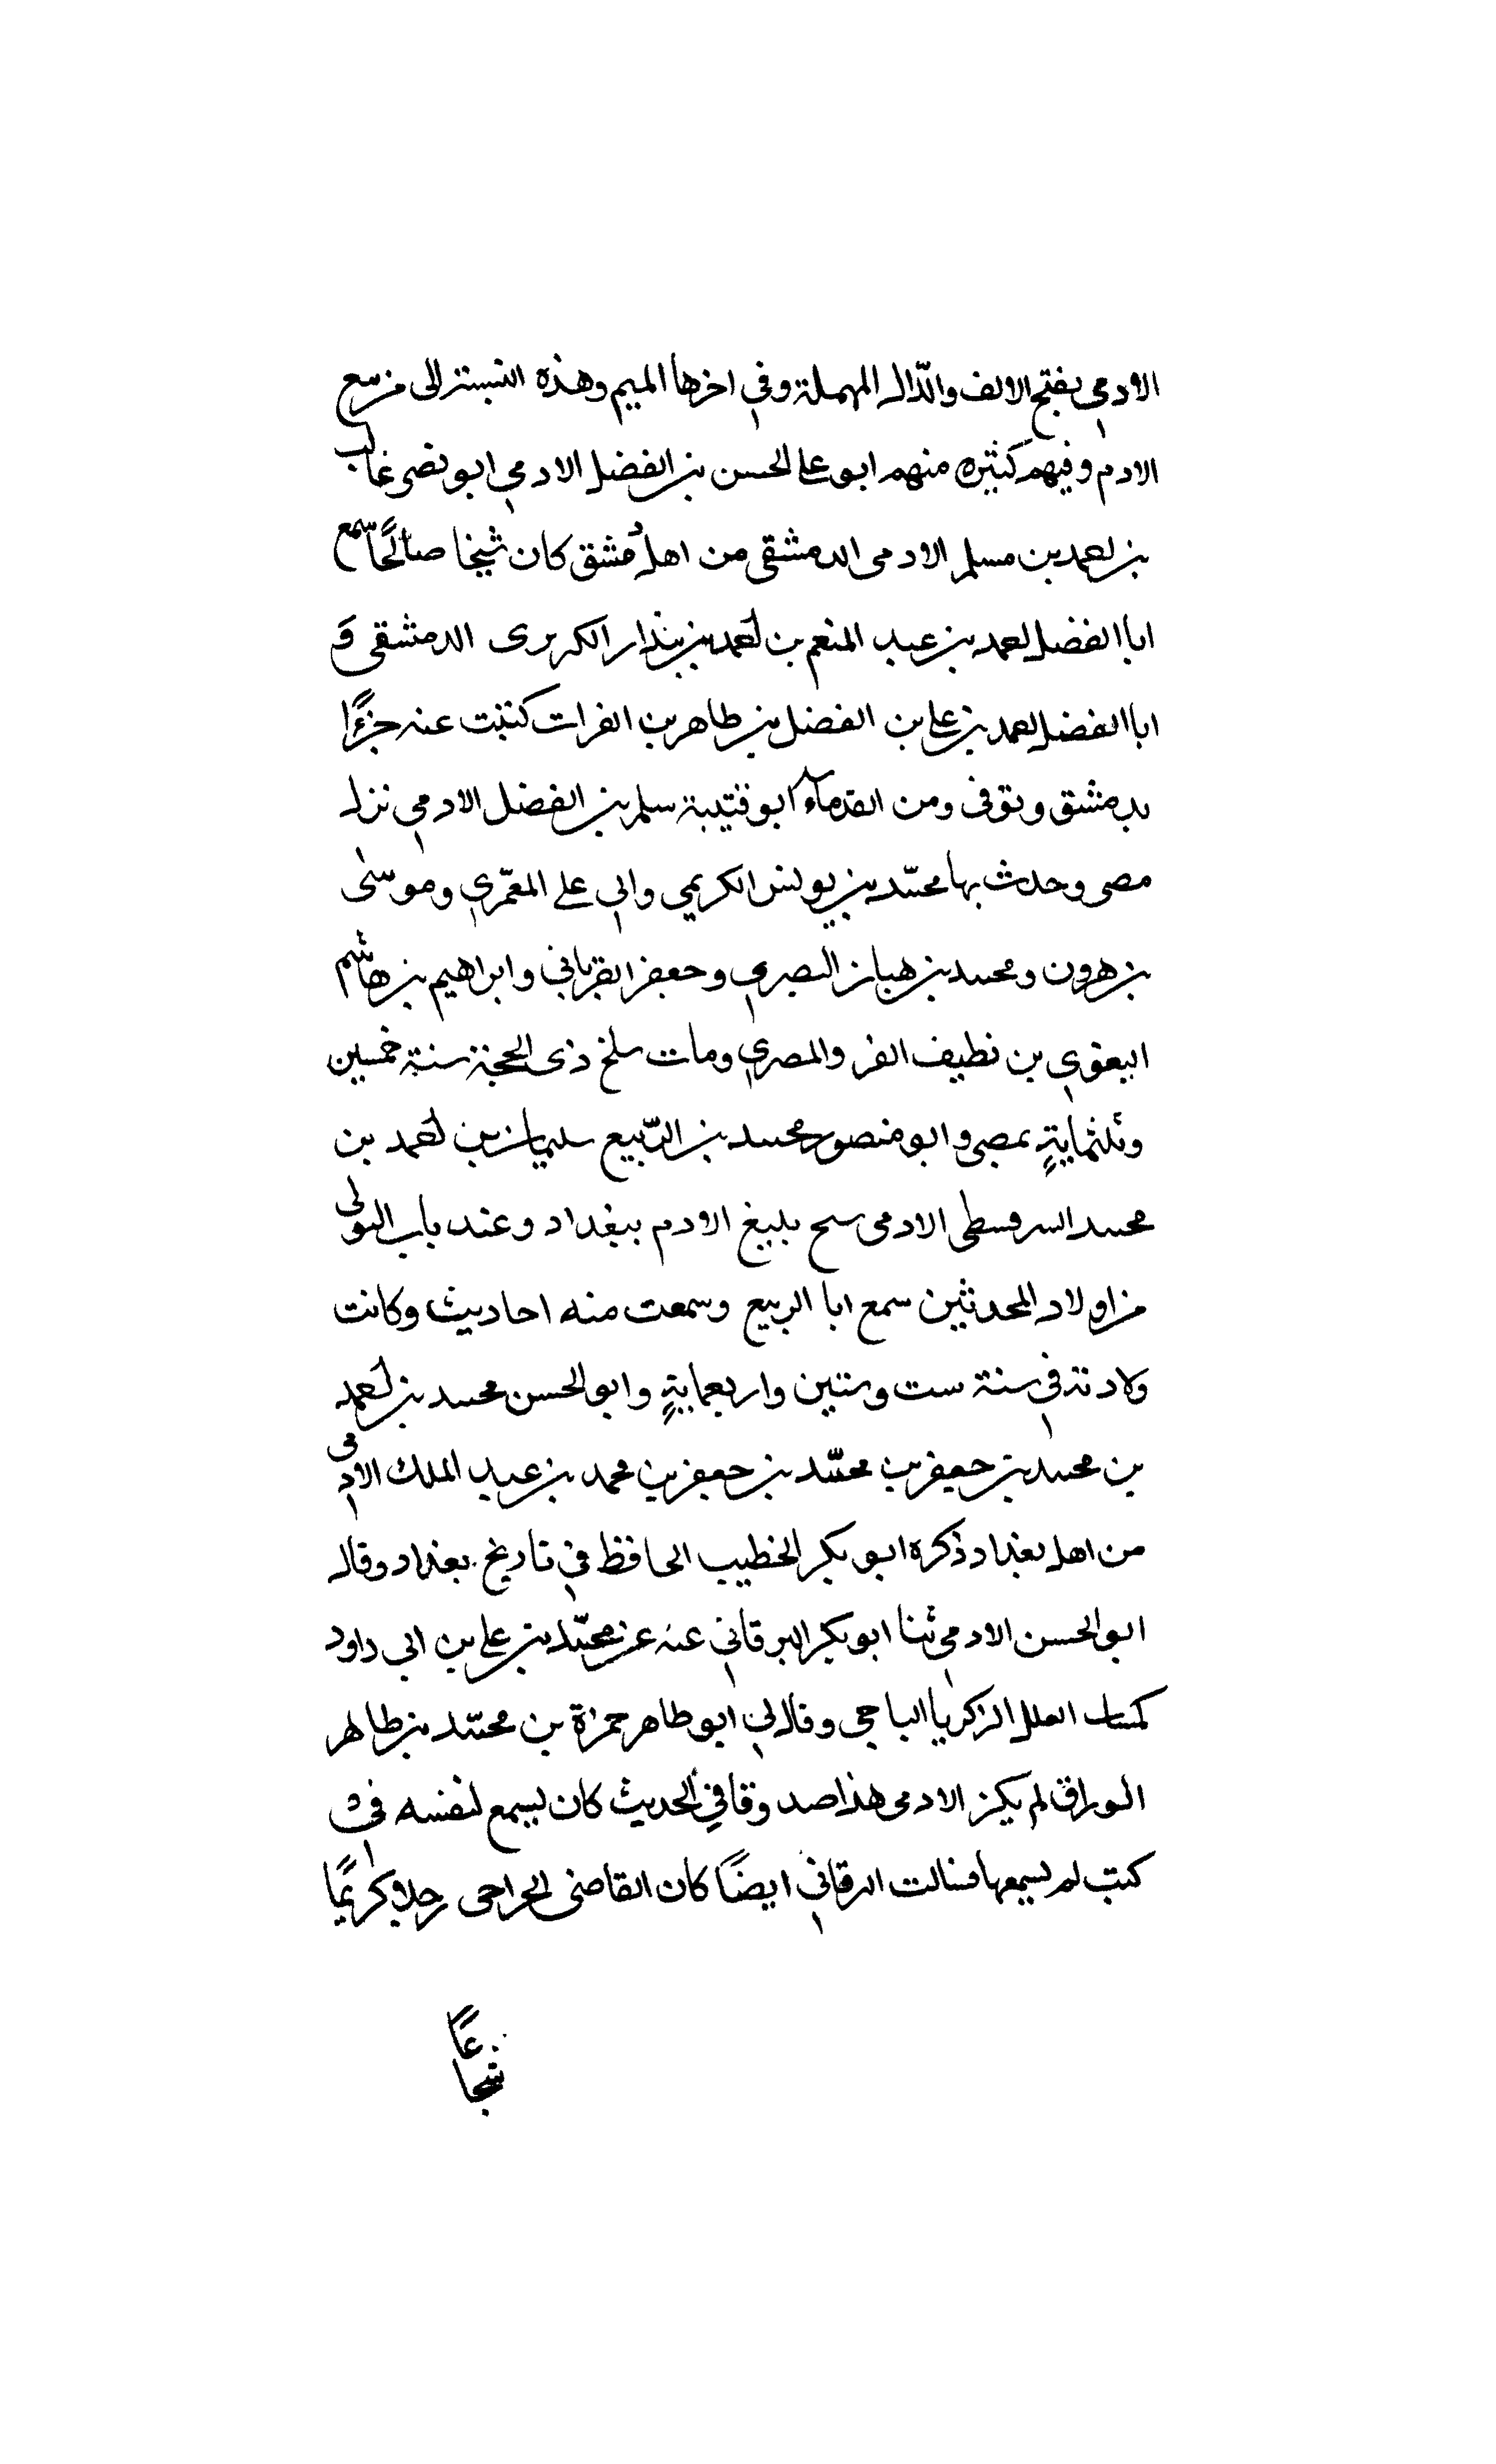 الادمي بفتح الالف والدّال المهملة وفي اخرها الميم وهذه النسبة الى من يبيع
الادم وفيهم كثيره منهم ابو علي الحسن بن الفضل الادمي ابو نصر غالب
بن احمد بن مسلم الادمي الدمشقي من اهل دمشق كان شيخا صالحًا سمع
ابا الفضل احمد بن عبد المنعم بن احمد بن بندار الكريري الدمشقي و
ابا الفضل احمد بن علي بن الفضل بن طاهر بن الفرات كتبت عنه جزءًا
بدمشق وتوفي ومن القدماء ابو قتيبة سلم بن الفضل الادمي نزل
مصر وحدث بها محمّد بن يونس الكريمي وابي علي المعمّري وموسى
بن هرون ومحمد بن هبان البصري وجعفر الفريابي وابراهيم بن هاشم
البغوي بن نظيف الفر والمصري ومات سلخ ذى الحجة سنة خمسين
وثلثماية بمصر وابو منصور محمد بن الرّبيع سليمان بن احمد بن
محمد السرقسطي الادمي بيبع الادم ببغداد وعند باب النوبي
من اولاد المحدثين سمع ابا الربيع وسمعت منه احاديث وكانت
ولادته في سنة ست وستين واربعماية وابو الحسن محمد بن احمد
بن محمد بن جعفر بن محمّد بن جعفر بن محمد بن عبد الملك الادمي
من اهل بغداد ذكره ابو بكر الخطيب الحافظ في تاريخ بغداد وقال
ابو الحسن الادمي ثنا ابو بكر البرقاني عنه عن محمّد بن علي بن ابي داود
كتاب العلل الزكريا الباجي وقال لي ابو طاهر حمزة بن محمّد بن طاهر
الوراق لم يكن الادمي هذا صدوقا في الحديث كان يسمع لنفسه في
كتب لم يسمعها فسالت البرقاني ايضًا كان القاضي الجراحي رجلا كريمًا
شجاعًا